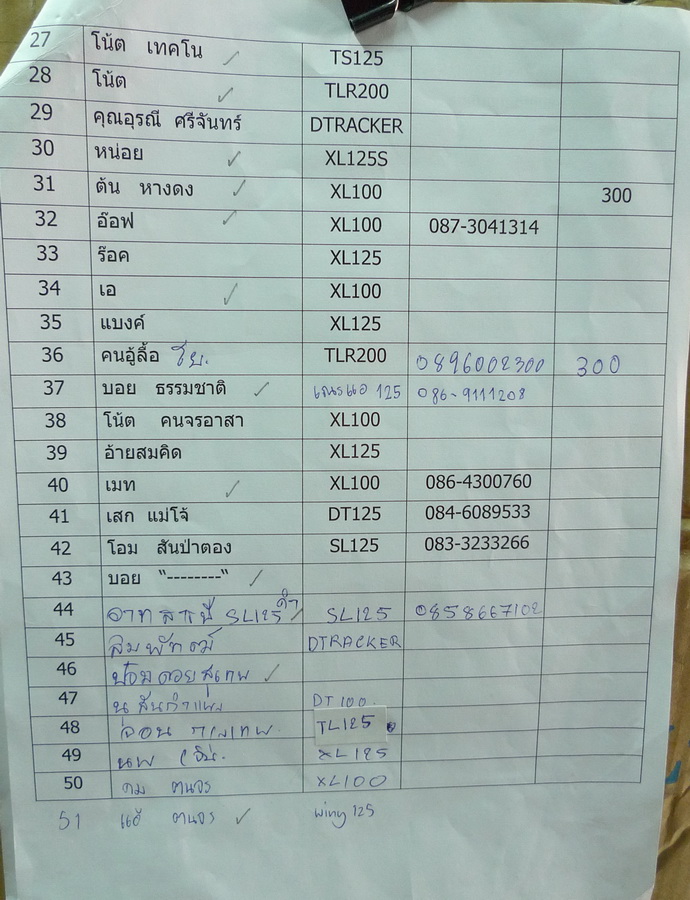 27 โน้ต เทคโน ✓ TS125
28 โน้ต ✓ TLR200
29 คุณอุรณี ศรีจันทร์ DTRACKER
30 หน่อย ✓ XL125S
31 ต้น หางดง ✓ XL100 300
32 อ๊อฟ ✓ XL100 087-3041314
33 ร๊อค XL125
34 เอ ✓ XL100
35 แบงค์ XL125
36 คนอู้ลื้อ TLR200 0896002300 300
37 บอย ธรรมชาติ ✓ 125 086-9111208
38 โน้ต คนจรอาสา XL100
39 อ้ายสมคิด XL125
40 เมท ✓ XL100 086-4300760
41 เสก แม่โจ้ DT125 084-6089533
42 โอม สันป่าตอง SL125 083-3233266
43 บอย "--------" ✓
44 SL125 ดำ ✓ SL125 0858667102
45 DTRACKER
46 ป้อม ดอยสุเทพ ✓
47 น สันกำแพง DT100
48 จ๋อน กรุงเทพ TL125
49 นพ XL125
50 คม XL100
51 ✓ wing 125